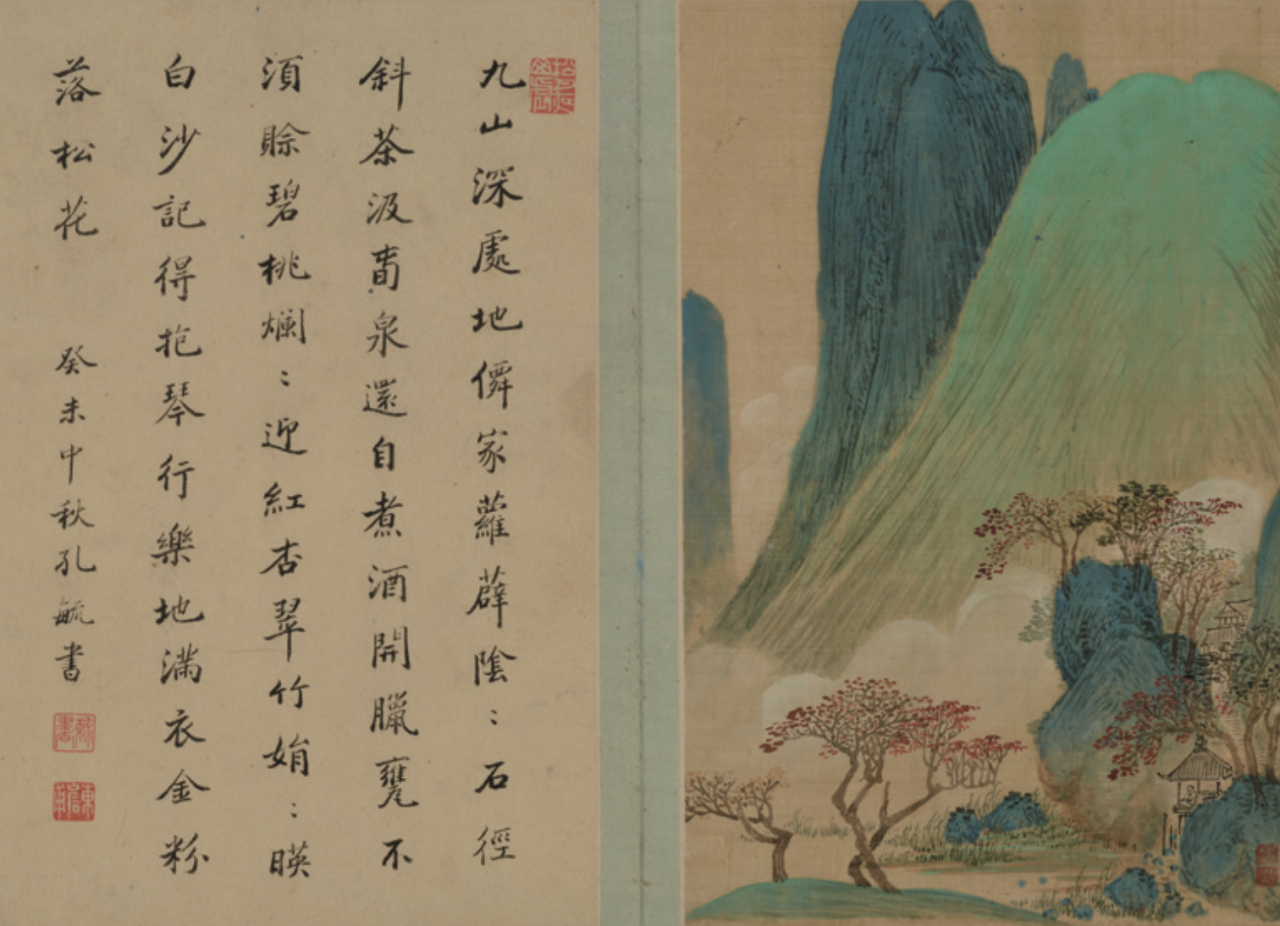 九山深處地僻家蘿薜陰〻石徑
斜茶汲嵒泉還自煮酒開臘甕不
須賖碧桃爛〻迎紅杏翠竹娟〻暎
白沙記得抱琴行樂地滿衣金粉
落松花
癸未中秋孔毓書